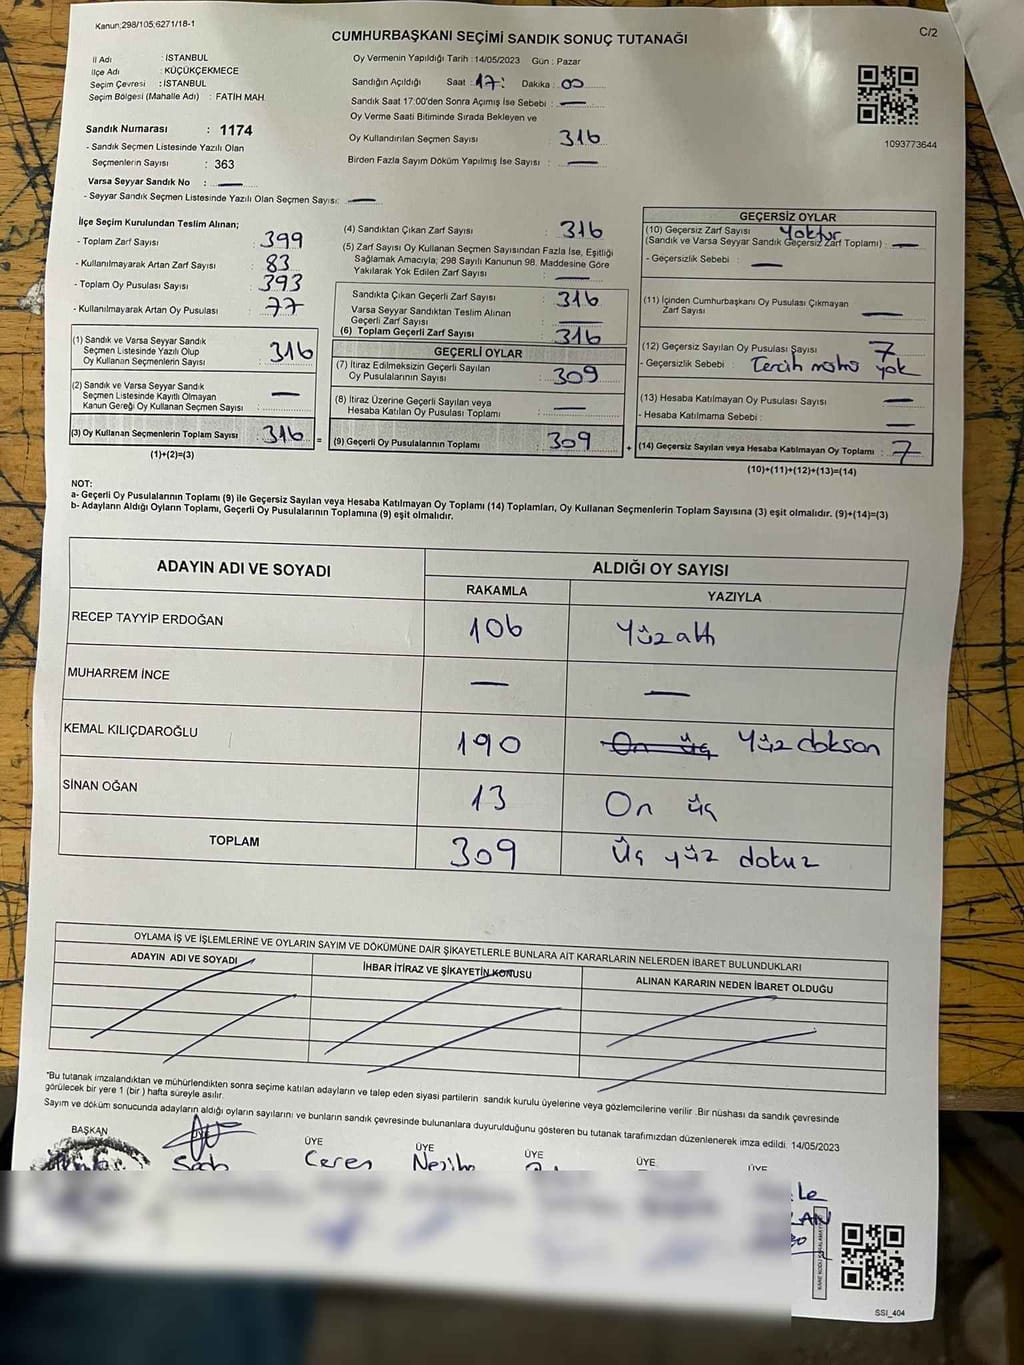 Kanun;298/105;6271/18-1
C/2
CUMHURBAŞKANI SEÇİMİ SANDIK SONUÇ TUTANAĞI
İl Adı : İSTANBUL
İlçe Adı : KÜÇÜKÇEKMECE
Seçim Çevresi : İSTANBUL
Seçim Bölgesi (Mahalle Adı) : FATİH MAH.
Sandık Numarası : 1174
- Sandık Seçmen Listesinde Yazılı Olan
Seçmenlerin Sayısı : 363
Varsa Seyyar Sandık No : —
- Seyyar Sandık Seçmen Listesinde Yazılı Olan Seçmen Sayısı: —
Oy Vermenin Yapıldığı Tarih : 14/05/2023 Gün : Pazar
Sandığın Açıldığı Saat : 17: Dakika : 00
Sandık Saat 17:00'den Sonra Açımış İse Sebebi : —
Oy Verme Saati Bitiminde Sırada Bekleyen ve
Oy Kullandırılan Seçmen Sayısı : 316
Birden Fazla Sayım Döküm Yapılmış İse Sayısı : —
1093773644
İlçe Seçim Kurulundan Teslim Alınan;
- Toplam Zarf Sayısı : 399
- Kullanılmayarak Artan Zarf Sayısı : 83
- Toplam Oy Pusulası Sayısı : 393
- Kullanılmayarak Artan Oy Pusulası : 77
(1) Sandık ve Varsa Seyyar Sandık
Seçmen Listesinde Yazılı Olup
Oy Kullanan Seçmenlerin Sayısı : 316
(2) Sandık ve Varsa Seyyar Sandık
Seçmen Listesinde Kayıtlı Olmayan
Kanun Gereği Oy Kullanan Seçmen Sayısı : —
(3) Oy Kullanan Seçmenlerin Toplam Sayısı : 316 =
(1)+(2)=(3)
(4) Sandıktan Çıkan Zarf Sayısı : 316
(5) Zarf Sayısı Oy Kullanan Seçmen Sayısından Fazla İse, Eşitliği
Sağlamak Amacıyla; 298 Sayılı Kanunun 98. Maddesine Göre
Yakılarak Yok Edilen Zarf Sayısı : —
Sandıkta Çıkan Geçerli Zarf Sayısı : 316
Varsa Seyyar Sandıktan Teslim Alınan
Geçerli Zarf Sayısı : —
(6) Toplam Geçerli Zarf Sayısı : 316
GEÇERLİ OYLAR
(7) İtiraz Edilmeksizin Geçerli Sayılan
Oy Pusulalarının Sayısı : 309
(8) İtiraz Üzerine Geçerli Sayılan veya
Hesaba Katılan Oy Pusulası Toplamı : —
(9) Geçerli Oy Pusulalarının Toplamı : 309 +
GEÇERSİZ OYLAR
(10) Geçersiz Zarf Sayısı Yoktur
(Sandık ve Varsa Seyyar Sandık Geçersiz Zarf Toplamı) : —
- Geçersizlik Sebebi : —
(11) İçinden Cumhurbaşkanı Oy Pusulası Çıkmayan
Zarf Sayısı : —
(12) Geçersiz Sayılan Oy Pusulası Sayısı : 7
- Geçersizlik Sebebi : Tercih mührü yok
(13) Hesaba Katılmayan Oy Pusulası Sayısı : —
- Hesaba Katılmama Sebebi : —
(14) Geçersiz Sayılan veya Hesaba Katılmayan Oy Toplamı : 7
(10)+(11)+(12)+(13)=(14)
NOT:
a- Geçerli Oy Pusulalarının Toplamı (9) ile Geçersiz Sayılan veya Hesaba Katılmayan Oy Toplamı (14) Toplamları, Oy Kullanan Seçmenlerin Toplam Sayısına (3) eşit olmalıdır. (9)+(14)=(3)
b- Adayların Aldığı Oyların Toplamı, Geçerli Oy Pusulalarının Toplamına (9) eşit olmalıdır.
ADAYIN ADI VE SOYADI
ALDIĞI OY SAYISI
RAKAMLA YAZIYLA
RECEP TAYYİP ERDOĞAN 106 Yüz altı
MUHARREM İNCE — —
KEMAL KILIÇDAROĞLU 190 On üç Yüz doksan
SİNAN OĞAN 13 On üç
TOPLAM 309 Üç yüz dokuz
OYLAMA İŞ VE İŞLEMLERİNE VE OYLARIN SAYIM VE DÖKÜMÜNE DAİR ŞİKAYETLERLE BUNLARA AİT KARARLARIN NELERDEN İBARET BULUNDUKLARI
ADAYIN ADI VE SOYADI İHBAR İTİRAZ VE ŞİKAYETİN KONUSU ALINAN KARARIN NEDEN İBARET OLDUĞU
*Bu tutanak imzalandıktan ve mühürlendikten sonra seçime katılan adayların ve talep eden siyasi partilerin sandık kurulu üyelerine veya gözlemcilerine verilir .Bir nüshası da sandık çevresinde
görülecek bir yere 1 (bir ) hafta süreyle asılır.
Sayım ve döküm sonucunda adayların aldığı oyların sayılarını ve bunların sandık çevresinde bulunanlara duyurulduğunu gösteren bu tutanak tarafımızdan düzenlenerek imza edildi. 14/05/2023
BAŞKAN ÜYE ÜYE ÜYE ÜYE ÜYE
Ceren
SSI_404